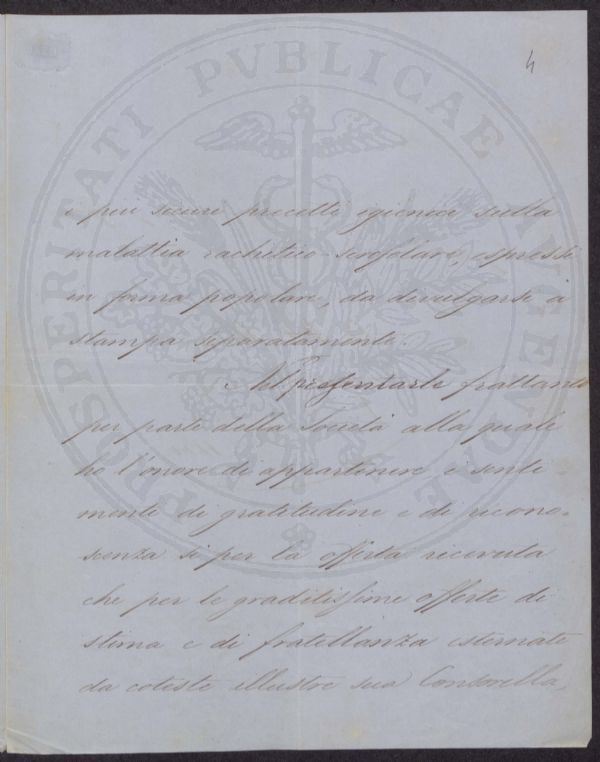 4
PROSPERITATI PVBLICAE AVGENDAE
i più sicuri precetti igienici sulla
malattia rachitico-scrofolare, espressi
in forma popolare, da divulgarsi a
stampa separatamente.
Nel presentarle frattanto
per parte della Società alla quale
ho l'onore di appartenere i senti
menti di gratitudine e di ricono-
scenza sì per la offerta ricevuta
che per le graditissime offerte di
stima e di fratellanza esternate
da coteste illustre sua Consorella,